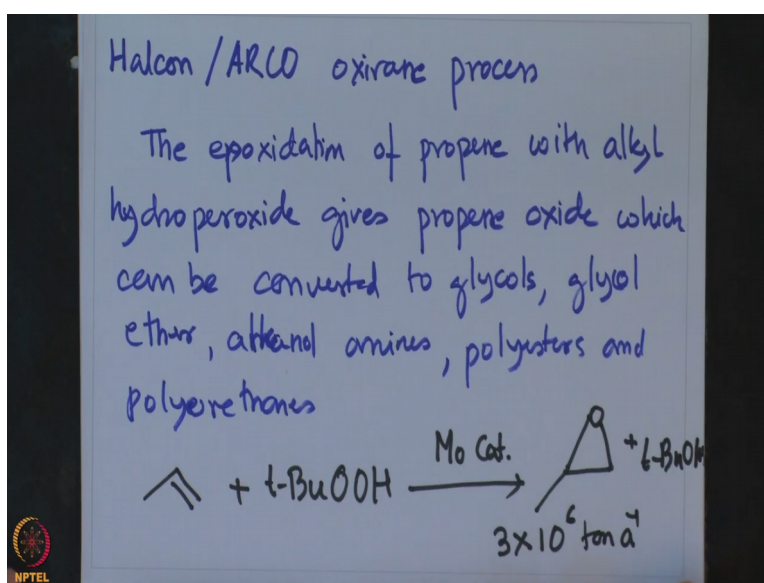 Halcon / ARCO oxirane process
The epoxidation of propene with alkyl
hydroperoxide gives propene oxide which
can be converted to glycols, glycol
ether, alkanol amines, polyesters and
polyurethanes
Mo Cat.
+ t-BuOOH
+ t-BuOH
3×10⁶ ton a⁻¹
NPTEL